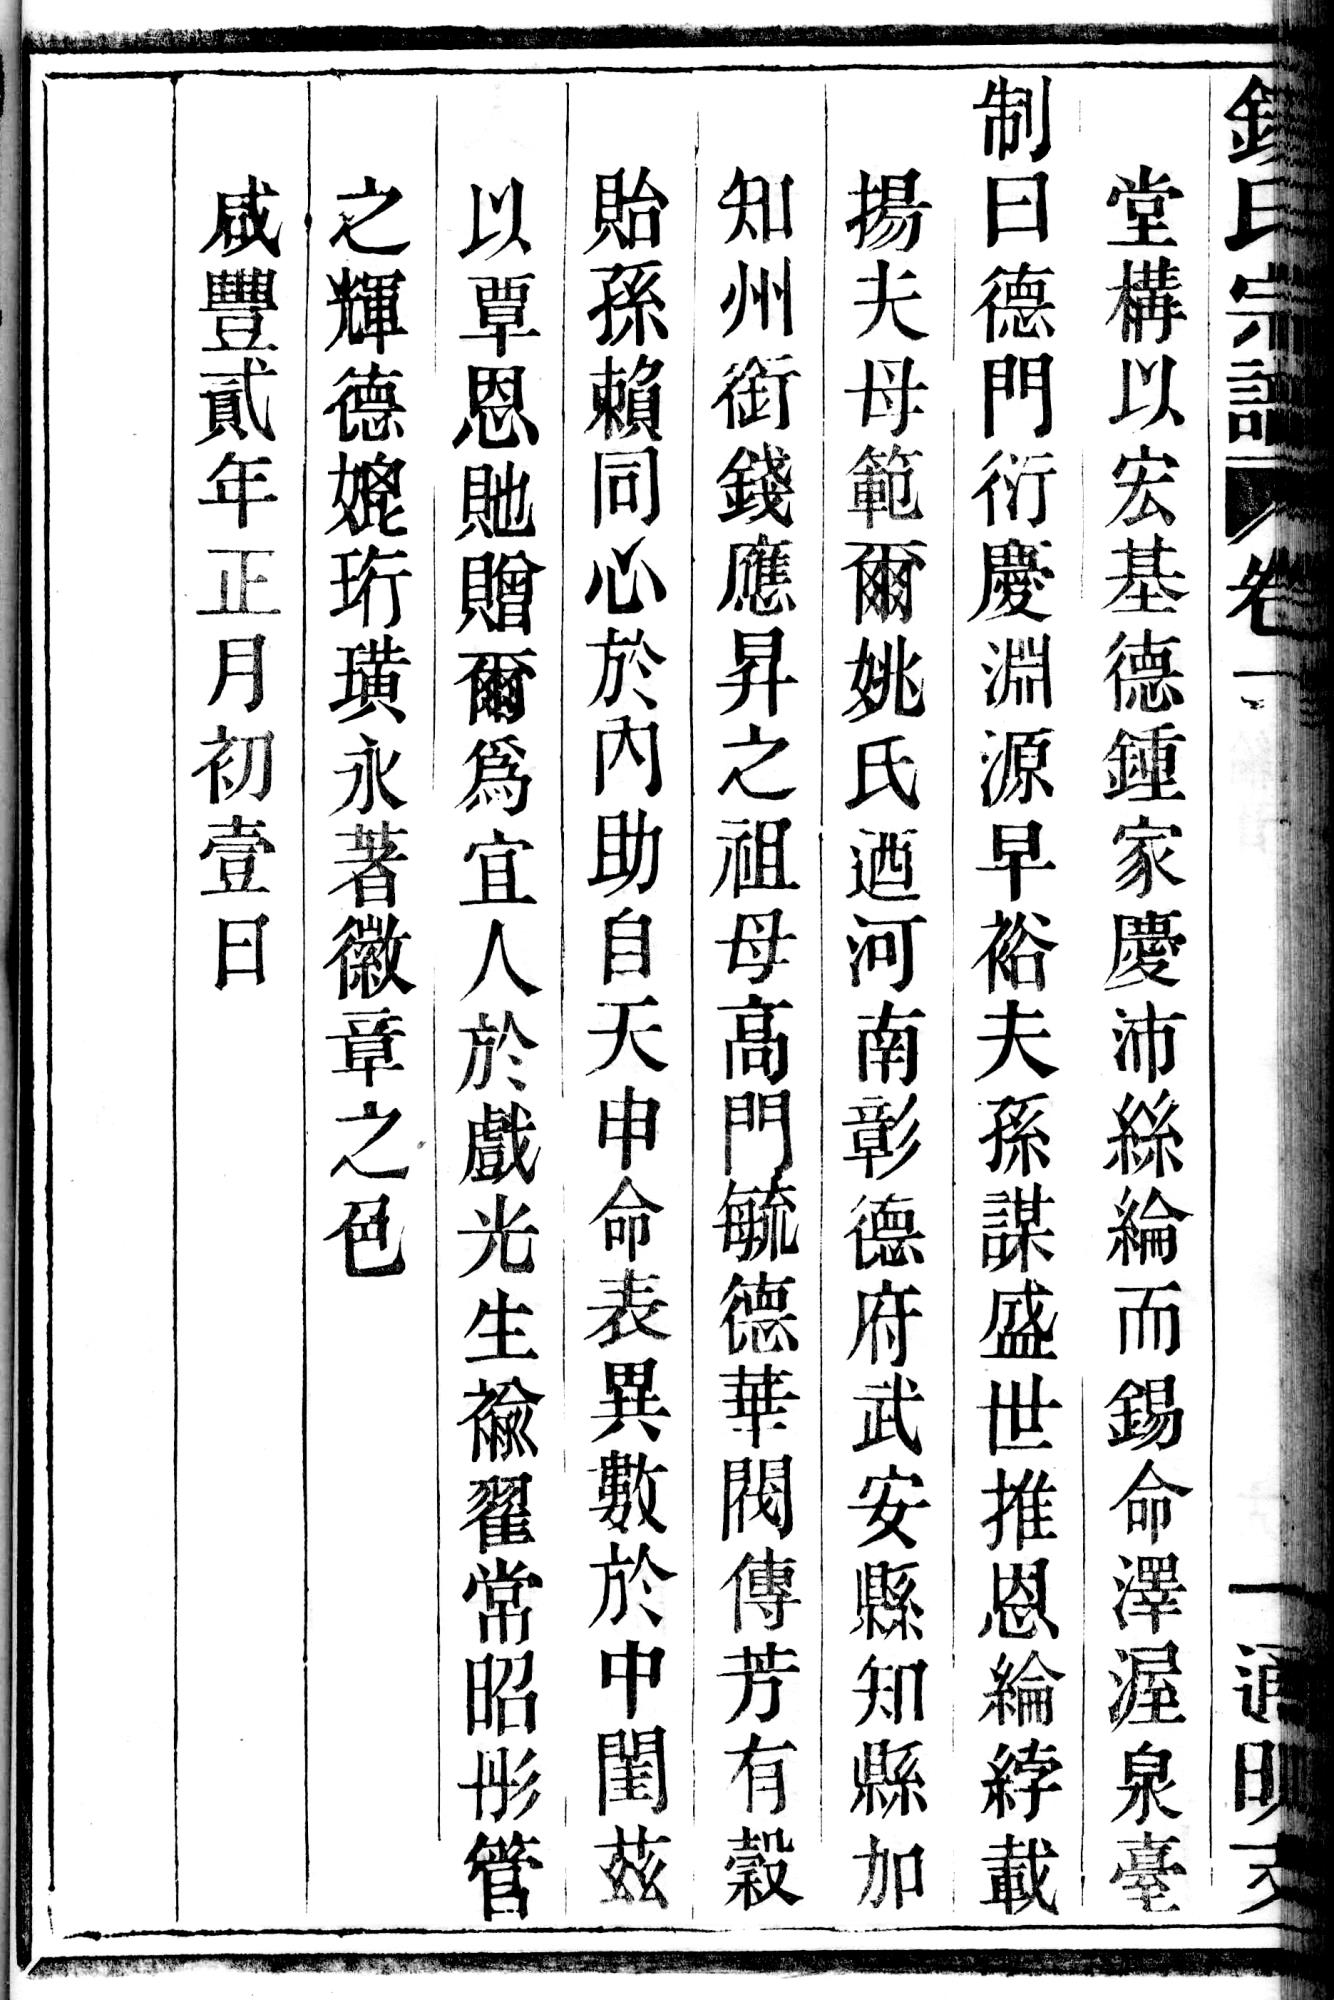 錢氏宗譜 卷一 通明支
堂構以宏基德鍾家慶沛絲綸而錫命澤渥泉臺
制曰德門衍慶淵源早裕夫孫謀盛世推恩綸綍載
揚夫母範爾姚氏迺河南彰德府武安縣知縣加
知州銜錢應昇之祖母高門毓德華閥傳芳有穀
貽孫賴同心於內助自天申命表異數於中閨茲
以覃恩貤贈爾爲宜人於戲光生褕翟常昭彤管
之輝德媲珩璜永著徽章之色
咸豐貳年正月初壹日